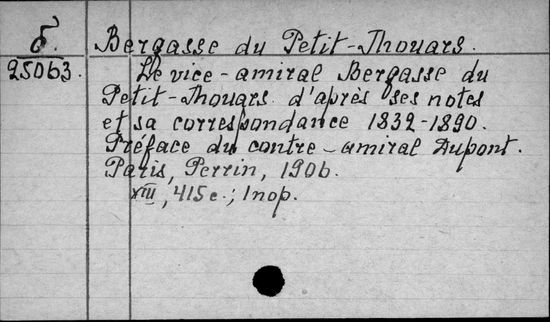 б. Bergasse du Petit-Thouars.
25063. Le vice-amiral Bergasse du
Petit-Thouars d'après ses notes
et sa correspondance 1832-1890.
Préface du contre-amiral Dupont.
Paris, Perrin, 1906.
XIII, 415 c.; 1 пор.